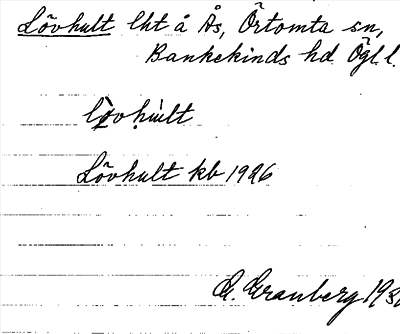 Lövhult lht å Ås, Örtomta sn,
Bankekinds hd. Ögl. l.
Lövhult kb 1926
G. Granberg 193